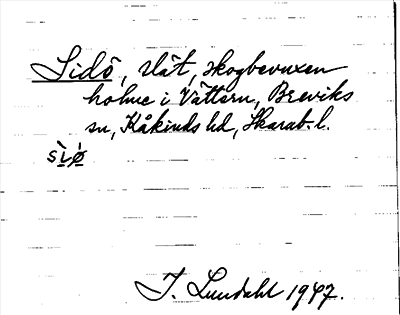 Sidö, slät, skogbevuxen
holme i Vättern, Breviks
sn, Kåkinds hd, Skarab. l.
I. Lundahl 1947.